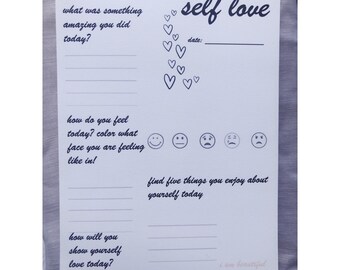 self love
what was something
amazing you did
today?
date:
how do you feel
today? color what
face you are feeling
like in!
find five things you enjoy about
yourself today
how will you
show yourself
love today?
i am beautiful